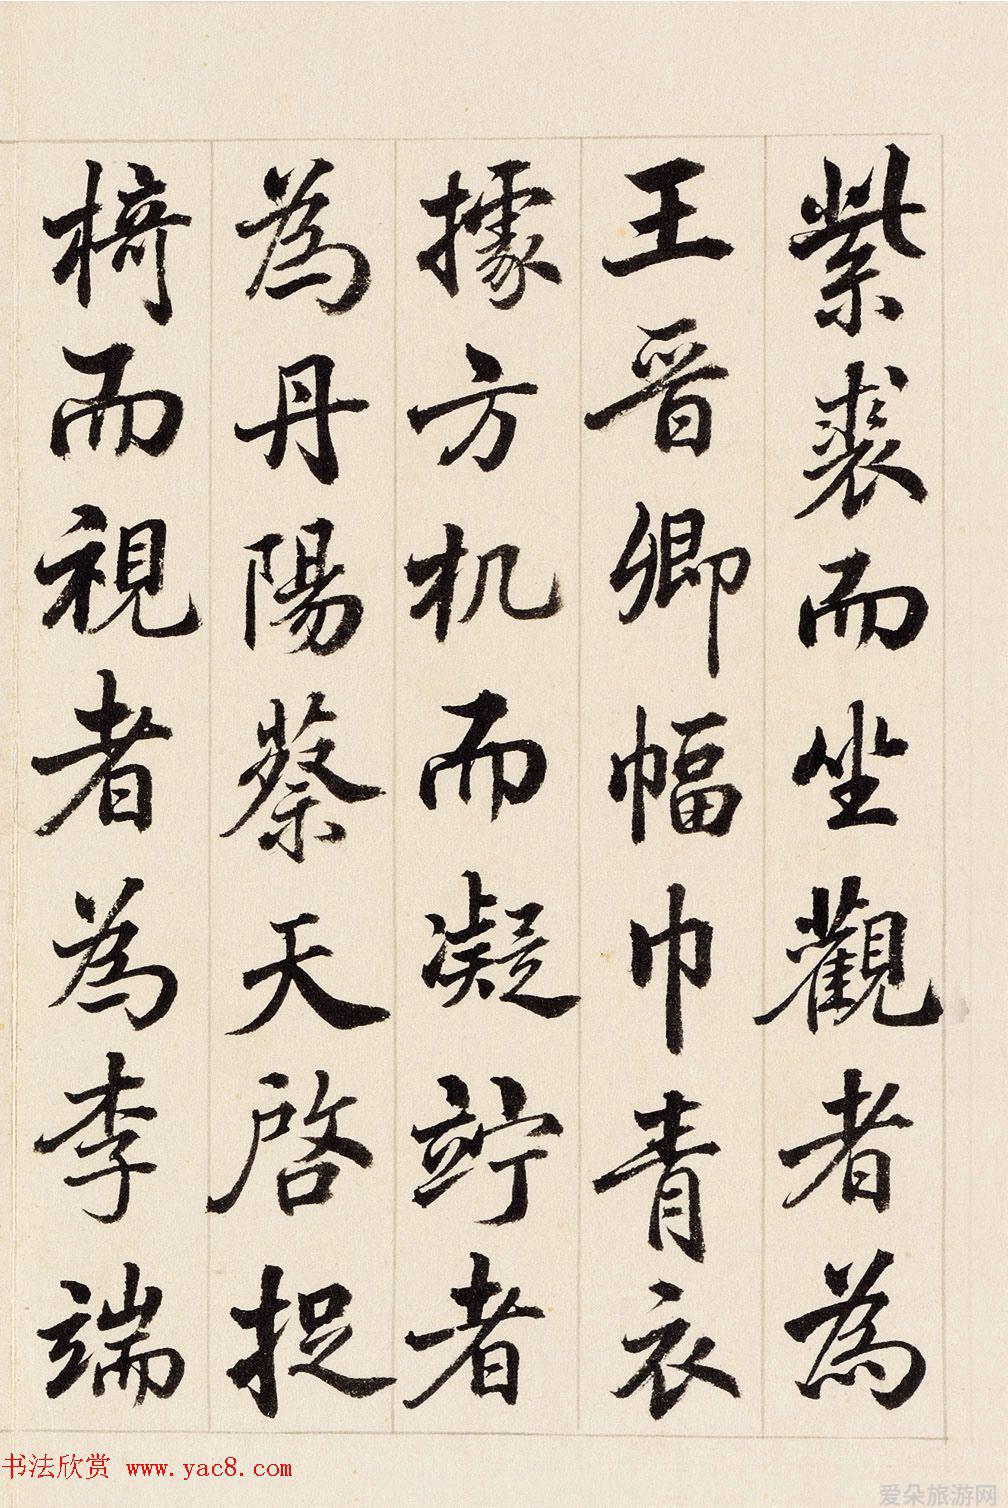 紫裘而坐觀者為
王晋卿幅巾青衣
據方机而凝竚者
為丹陽蔡天啓捉
椅而視者為李端
书法欣赏 www.yac8.com
爱朵旅游网